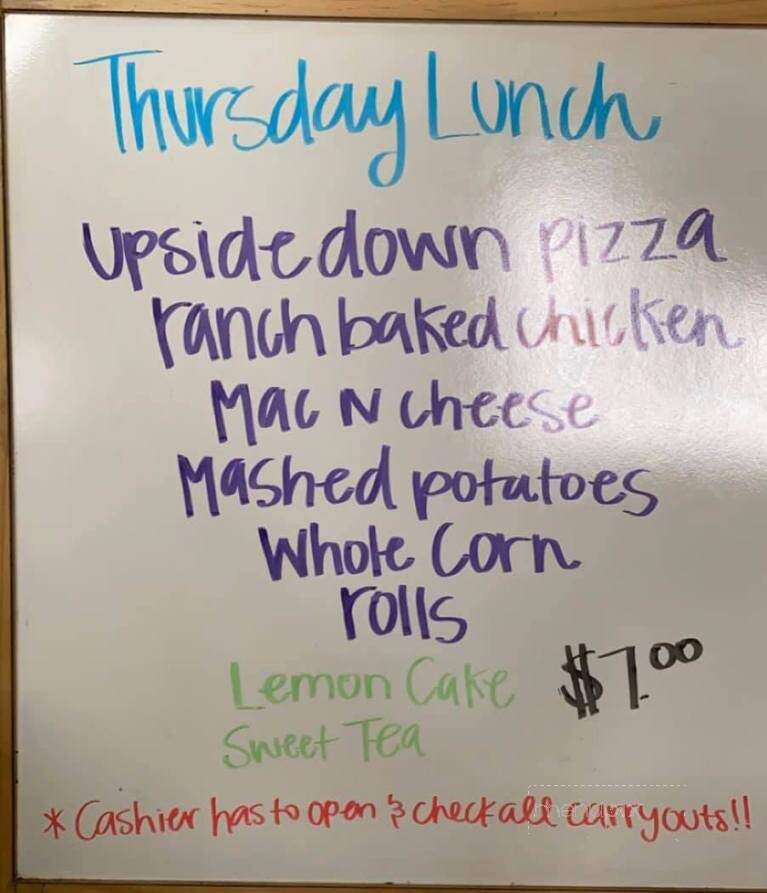 Thursday Lunch
upside down pizza
ranch baked chicken
Mac N cheese
Mashed potatoes
Whole Corn
rolls
Lemon Cake $7.00
Sweet Tea
* Cashier has to open & check all carryouts!!